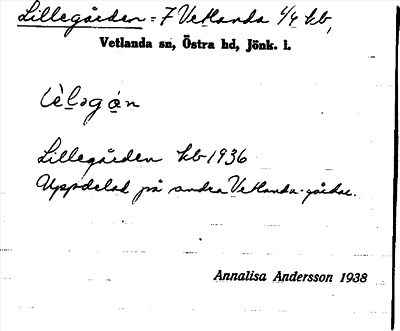 Lillegården = 7 Vetlanda 1/4 kb,
Vetlanda sn, Östra hd, Jönk. l.
Lillegården kb 1936
Uppdelad på andra Vetlanda-gårdar.
Annalisa Andersson 1938